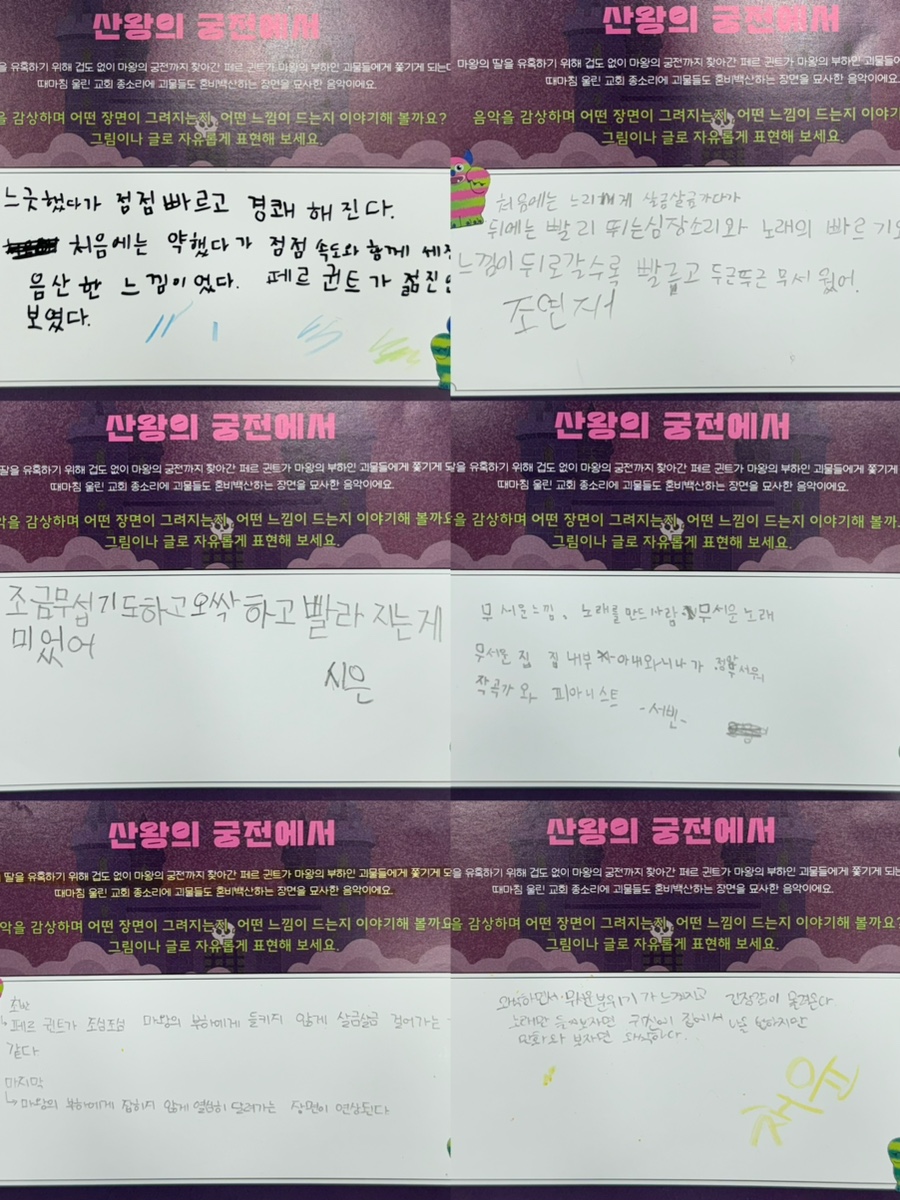 산왕의 궁전에서
을 유혹하기 위해 겁도 없이 마왕의 궁전까지 찾아간 페르 귄트가 마왕의 부하인 괴물들에게 쫓기게 되는데
때마침 울린 교회 종소리에 괴물들도 혼비백산하는 장면을 묘사한 음악이에요.
을 감상하며 어떤 장면이 그려지는지, 어떤 느낌이 드는지 이야기해 볼까요?
그림이나 글로 자유롭게 표현해 보세요.
느긋했다가 점점 빠르고 경쾌 해진다.
처음에는 약했다가 점점 속도와 함께 세져
음산한 느낌이었다. 페르 귄트가
보였다.
산왕의 궁전에서
마왕의 딸을 유혹하기 위해 겁도 없이 마왕의 궁전까지 찾아간 페르 귄트가 마왕의 부하인 괴물들에
때마침 울린 교회 종소리에 괴물들도 혼비백산하는 장면을 묘사한 음악이에요.
음악을 감상하며 어떤 장면이 그려지는지, 어떤 느낌이 드는지 이야기해 볼까요
그림이나 글로 자유롭게 표현해 보세요.
처음에는 느리게 살금살금가다가
뒤에는 빨리 뛰는심장소리와 노래의 빠르기와
느낌이 뒤로갈수록 빨르고 두근뚜근 무서웠어.
조연재
산왕의 궁전에서
딸을 유혹하기 위해 겁도 없이 마왕의 궁전까지 찾아간 페르 귄트가 마왕의 부하인 괴물들에게 쫓기게 되
때마침 울린 교회 종소리에 괴물들도 혼비백산하는 장면을 묘사한 음악이에요.
악을 감상하며 어떤 장면이 그려지는지, 어떤 느낌이 드는지 이야기해 볼까요
그림이나 글로 자유롭게 표현해 보세요.
조금무섭기도하고오싹하고빨라지는게
미있어
시은
산왕의 궁전에서
딸을 유혹하기 위해 겁도 없이 마왕의 궁전까지 찾아간 페르 귄트가 마왕의 부하인 괴물들에게 쫓기게
때마침 울린 교회 종소리에 괴물들도 혼비백산하는 장면을 묘사한 음악이에요.
을 감상하며 어떤 장면이 그려지는지, 어떤 느낌이 드는지 이야기해 볼까요?
그림이나 글로 자유롭게 표현해 보세요.
무서운느낌, 노래를만드사람, 무서운노래
무서운 집 집 내부
작곡가 와 피아니스트
-서빈-
산왕의 궁전에서
딸을 유혹하기 위해 겁도 없이 마왕의 궁전까지 찾아간 페르 귄트가 마왕의 부하인 괴물들에게 쫓기게 되
때마침 울린 교회 종소리에 괴물들도 혼비백산하는 장면을 묘사한 음악이에요.
악을 감상하며 어떤 장면이 그려지는지, 어떤 느낌이 드는지 이야기해 볼까요
그림이나 글로 자유롭게 표현해 보세요.
초반
페르 귄트가 조심조심 마왕의 부하에게 들키지 않게 살금살금 걸어가는
같다
마지막
↳마왕의 부하에게 잡히지 않게 열심히 달려가는 장면이 연상된다
산왕의 궁전에서
딸을 유혹하기 위해 겁도 없이 마왕의 궁전까지 찾아간 페르 귄트가 마왕의 부하인 괴물들에게 쫓기게 되
때마침 울린 교회 종소리에 괴물들도 혼비백산하는 장면을 묘사한 음악이에요.
을 감상하며 어떤 장면이 그려지는지, 어떤 느낌이 드는지 이야기해 볼까요?
그림이나 글로 자유롭게 표현해 보세요.
오싹하면서 무서운분위기가 느껴지고 긴장감이 흘런다
노래만 들어보자면
만화와 보자면